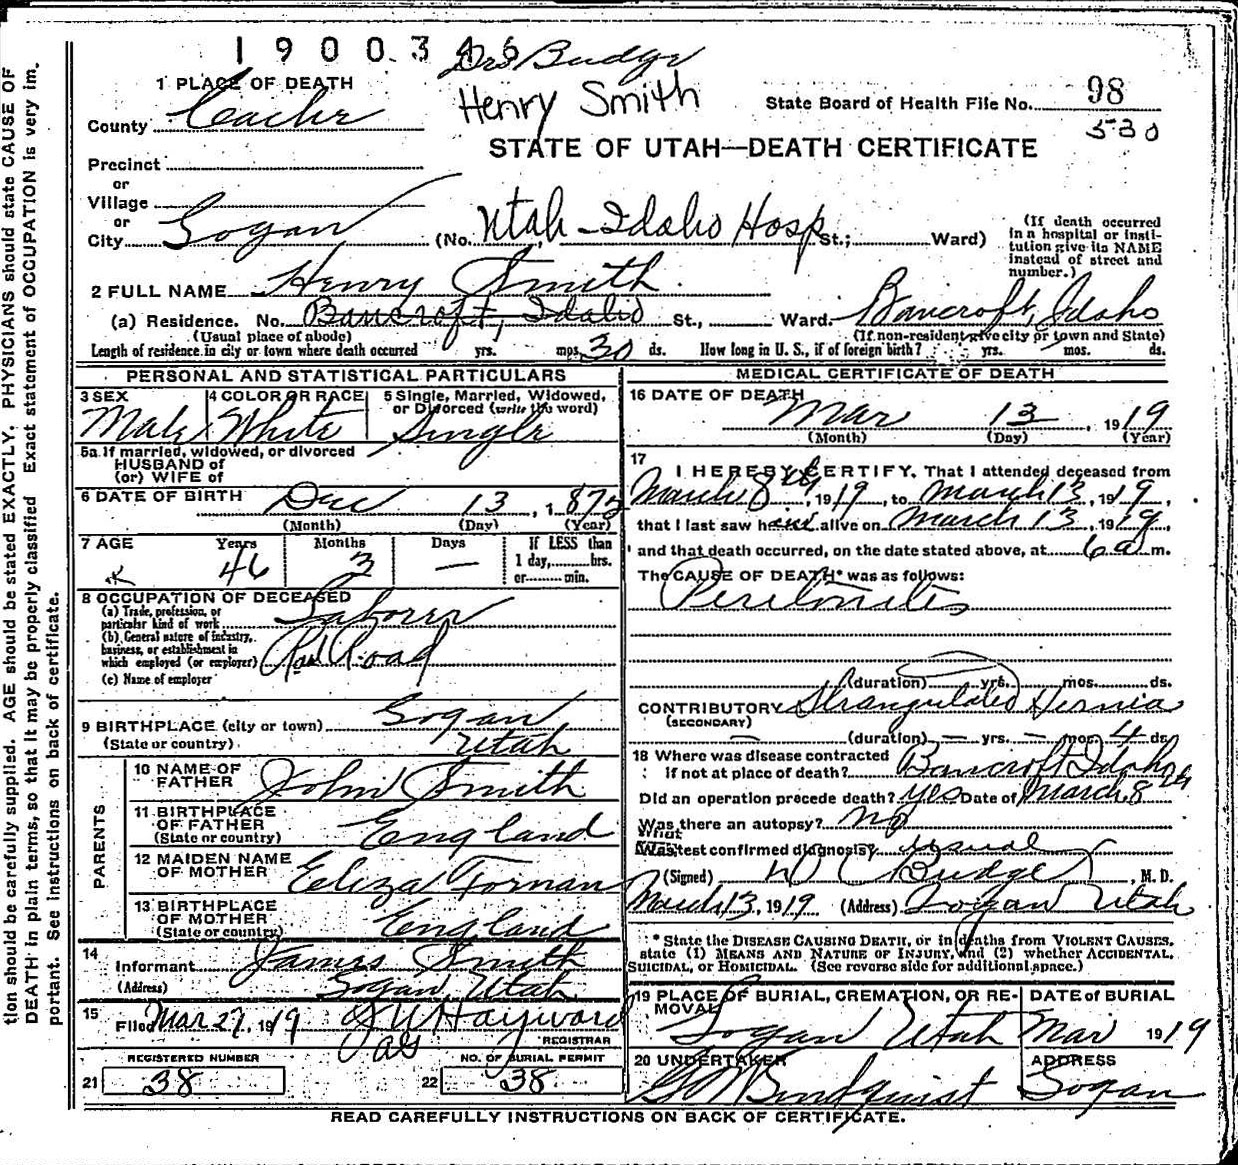 1900346 Drs Budge
Henry Smith
1 PLACE OF DEATH
County Cache
State Board of Health File No. 98
530
STATE OF UTAH—DEATH CERTIFICATE
Precinct
or
Village
or
City Logan (No. Utah-Idaho Hosp St.; Ward)
(If death occurred in a hospital or institution give its NAME instead of street and number.)
2 FULL NAME Henry Smith
(a) Residence. No. Bancroft, Idaho St., Ward. Bancroft, Idaho
(Usual place of abode) (If non-resident give city or town and State)
Length of residence in city or town where death occurred yrs. mos. 30 ds. How long in U. S., if of foreign birth? yrs. mos. ds.
PERSONAL AND STATISTICAL PARTICULARS
3 SEX 4 COLOR OR RACE 5 Single, Married, Widowed, or Divorced (write the word)
Male White Single
5a If married, widowed, or divorced
HUSBAND of
(or) WIFE of
6 DATE OF BIRTH Dec 13, 1872
(Month) (Day) (Year)
7 AGE Years Months Days If LESS than
46 3 — 1 day, hrs.
or min.
8 OCCUPATION OF DECEASED
(a) Trade, profession, or particular kind of work Laborer
(b) General nature of industry, business, or establishment in which employed (or employer) Rail Road
(c) Name of employer
9 BIRTHPLACE (city or town) Logan,
(State or country) Utah
PARENTS
10 NAME OF FATHER John Smith
11 BIRTHPLACE OF FATHER (State or country) England
12 MAIDEN NAME OF MOTHER Eeliza Forman
13 BIRTHPLACE OF MOTHER (State or country) England
14 Informant James Smith
(Address) Logan, Utah
15 Filed Mar 27, 1919 J W Hayward
REGISTRAR
REGISTERED NUMBER NO. OF BURIAL PERMIT
21 38 22 38
MEDICAL CERTIFICATE OF DEATH
16 DATE OF DEATH Mar 13, 1919
(Month) (Day) (Year)
17 I HEREBY CERTIFY, That I attended deceased from
March 8th, 1919, to March 13, 1919,
that I last saw him alive on March 13, 1919,
and that death occurred, on the date stated above, at 6 a m.
The CAUSE OF DEATH* was as follows:
Peritonites
(duration) yrs. mos. ds.
CONTRIBUTORY Strangulated Hernia
(SECONDARY) — (duration) — yrs. — mos. 4 ds.
18 Where was disease contracted
if not at place of death? Bancroft Idaho
Did an operation precede death? yes Date of March 8th
Was there an autopsy? no
What test confirmed diagnosis? usual
(Signed) D C Budge, M. D.
March 13, 1919 (Address) Logan Utah
* State the DISEASE CAUSING DEATH, or in deaths from VIOLENT CAUSES, state (1) MEANS AND NATURE OF INJURY, and (2) whether ACCIDENTAL, SUICIDAL, OR HOMICIDAL. (See reverse side for additional space.)
19 PLACE OF BURIAL, CREMATION, OR REMOVAL DATE of BURIAL
Logan Utah Mar 1919
20 UNDERTAKER ADDRESS
Logan
READ CAREFULLY INSTRUCTIONS ON BACK OF CERTIFICATE.
tion should be carefully supplied. AGE should be stated EXACTLY. PHYSICIANS should state CAUSE OF
DEATH in plain terms, so that it may be properly classified Exact statement of OCCUPATION is very im-
portant. See instructions on back of certificate.